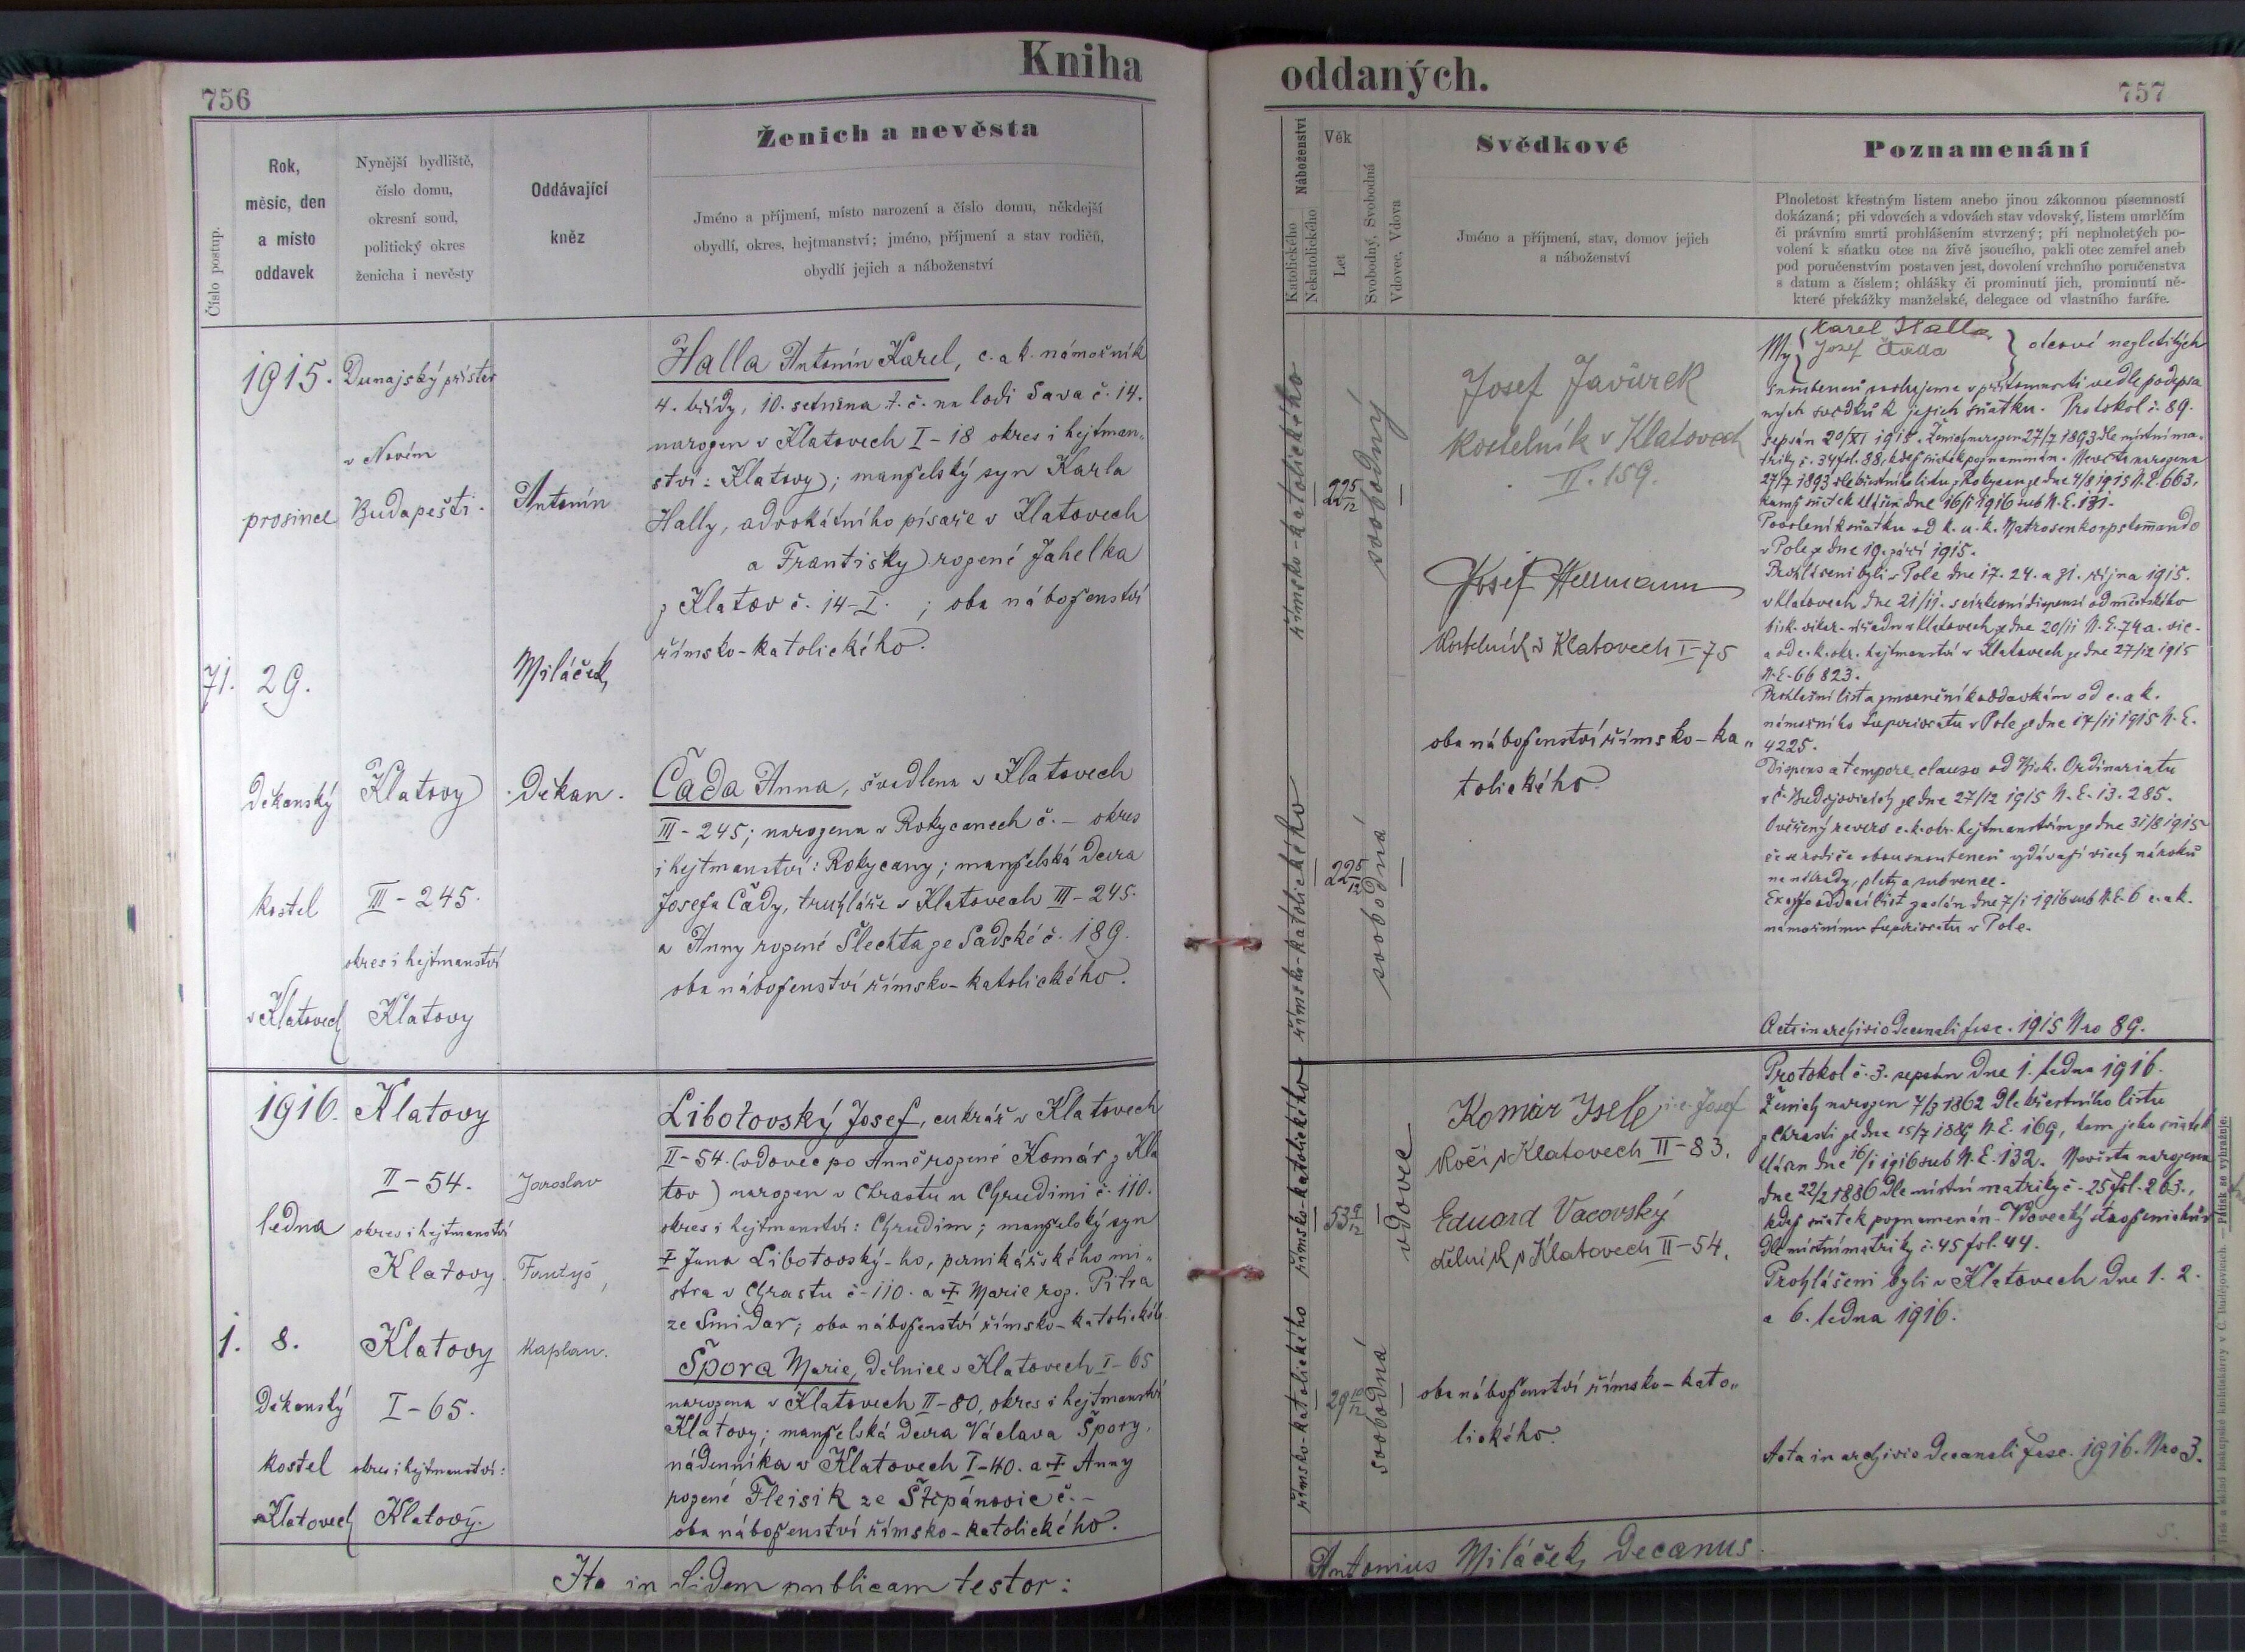 Kniha
oddaných.
756
757
Číslo postup.
Rok,
měsíc, den
a místo
oddavek
Nynější bydliště,
číslo domu,
okresní soud,
politický okres
ženicha i nevěsty
Oddávající
kněz
Ženich a nevěsta
Jméno a příjmení, místo narození a číslo domu, někdejší
obydlí, okres, hejtmanství; jméno, příjmení a stav rodičů,
obydlí jejich a náboženství
Náboženství
Katolického
Nekatolického
Věk
Let
Svobodný, Svobodná
Vdovec, Vdova
Svědkové
Jméno a příjmení, stav, domov jejich
a náboženství
Poznamenání
Plnoletost křestným listem anebo jinou zákonnou písemností
dokázaná; při vdovcích a vdovách stav vdovský, listem umrlčím
či právním smrti prohlášením stvrzený; při neplnoletých po-
volení k sňatku otce na živě jsoucího, pakli otec zemřel aneb
pod poručenstvím postaven jest, dovolení vrchního poručenstva
s datum a číslem; ohlášky či prominutí jich, prominutí ně-
které překážky manželské, delegace od vlastního faráře.
71.
1915.
prosince
29.
Děkanský
kostel
v Klatovech
Dunajský přístav
v Novém
Budapešti.
Klatovy
III-245.
okres i hejtmanství
Klatovy
Antonín
Miláček,
Děkan.
Halla Antonín Karel, c. a k. námořník
4. třídy, 10. setnina t. č. na lodi Sava č. 14.
narozen v Klatovech I-18 okres i hejtman-
ství: Klatovy; manželský syn Karla
Hally, advokátního písaře v Klatovech
a Františky rozené Jahelka
z Klatov č. 14-I.; oba náboženství
římsko-katolického.
Čada Anna, švadlena v Klatovech
III-245; narozena v Rokycanech č. - okres
i hejtmanství: Rokycany; manželská dcera
Josefa Čady, truhláře v Klatovech III-245.
a Anny rozené Šlechta ze Sadské č. 189.
oba náboženství římsko-katolického.
římsko-katolického
22 5/12
svobodný
římsko-katolického
22 5/12
svobodná
Josef Javůrek
kostelník v Klatovech
II. 159.
Josef Hellmann
kostelník v Klatovech I-75
oba náboženství římsko-ka-
tolického.
My { Karel Halla
Josef Čada } otcové nezletilých
snoubenců svolujeme v přítomnosti vedle podepsa
ných svědků k jejich sňatku. Protokol č. 89.
sepsán 20/XI 1915. Ženich narozen 27/7 1893 dle místní ma-
triky č. 34 fol. 88, kdež sňatek poznamenán. Nevěsta narozena
27/7 1893 dle křestního listu z Rokycan ze dne 4/8 1915 N. E. 663,
kamž sňatek hlášen dne 16/1 1916 sub N. E. 131.
Povolení k sňatku od k. u. k. Matrosenkorpskommando
v Pole ze dne 19. září 1915.
Prohlášeni byli v Pole dne 17. 24. a 31. října 1915.
v Klatovech dne 21/11.
a od c. k. okr. hejtmanství v Klatovech ze dne 27/12 1915
N. E. 66823.
námořního Superiorátu v Pole ze dne 17/11 1915 N. E.
4225.
Dispens a tempore clauso od Bisk. Ordinariatu
v Č. Budějovicích ze dne 27/12 1915 N. E. 13.285.
Ověřený revers c. k. okr. hejtmanstvím ze dne 31/8 1915
že se rodiče obou snoubenců vzdávají všech nároků
na náhrady, platy a subvence.
Ex offo oddací list zaslán dne 7/1 1916 sub N. E. 6 c. a k.
námořnímu Superiorátu v Pole.
Acta in archivio decanali fasc. 1915 Nro 89.
1.
1916.
ledna
8.
Děkanský
kostel
v Klatovech
Klatovy
II-54.
okres i hejtmanství
Klatovy.
Klatovy
I-65.
okres i hejtmanství:
Klatovy.
Jaroslav
kaplan.
Libotovský Josef, cukrář v Klatovech
II-54. (vdovec po Anně rozené Komár z Kla
tov) narozen v Chrastu u Chrudimi č. 110.
okres i hejtmanství: Chrudim; manželský syn
† Jana Libotovský-ho, perníkářského mi-
stra v Chrastu č-110. a † Marie roz. Pitra
ze Smidar; oba náboženství římsko-katolického
Špora Marie, dělnice v Klatovech I-65
narozena v Klatovech II-80, okres i hejtmanství
Klatovy; manželská dcera Václava Špory,
nádenníka v Klatovech I-40. a † Anny
rozené Fleisik ze Štěpánovic č. -
oba náboženství římsko-katolického.
římsko-katolického
53 9/12
vdovec
římsko-katolického
29 10/12
svobodná
Komár Josef
kočí v Klatovech II-83.
Eduard Vacovský
dělník v Klatovech II-54.
oba náboženství římsko-kato-
lického.
Protokol č. 3. sepsán dne 1. ledna 1916.
Ženich narozen 7/3 1862 dle křestního listu
z Chrasti ze dne 15/7 1889 N. E. 169, tam jeho sňatek
hlášen dne 16/1 1916 sub N. E. 132. Nevěsta narozena
dne 22/2 1886 dle místní matriky č. 25 fol. 263.,
kdež sňatek poznamenán. Vdovecký stav ženichův
dle místní matriky č. 45 fol. 44.
Prohlášeni byli v Klatovech dne 1. 2.
a 6. ledna 1916.
Acta in archivio decanali Fasc. 1916. Nro 3.
Ita in fidem publicam testor:
Antonius Miláček, Decanus.
Tisk a sklad biskupské knihtiskárny v Č. Budějovicích. — Pátisk se vyhražuje.